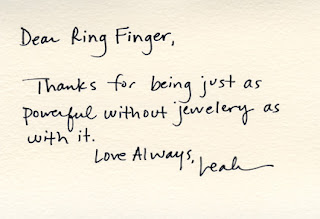 Dear Ring Finger,
Thanks for being just as
powerful without jewelery as
with it.
Love Always, Leah